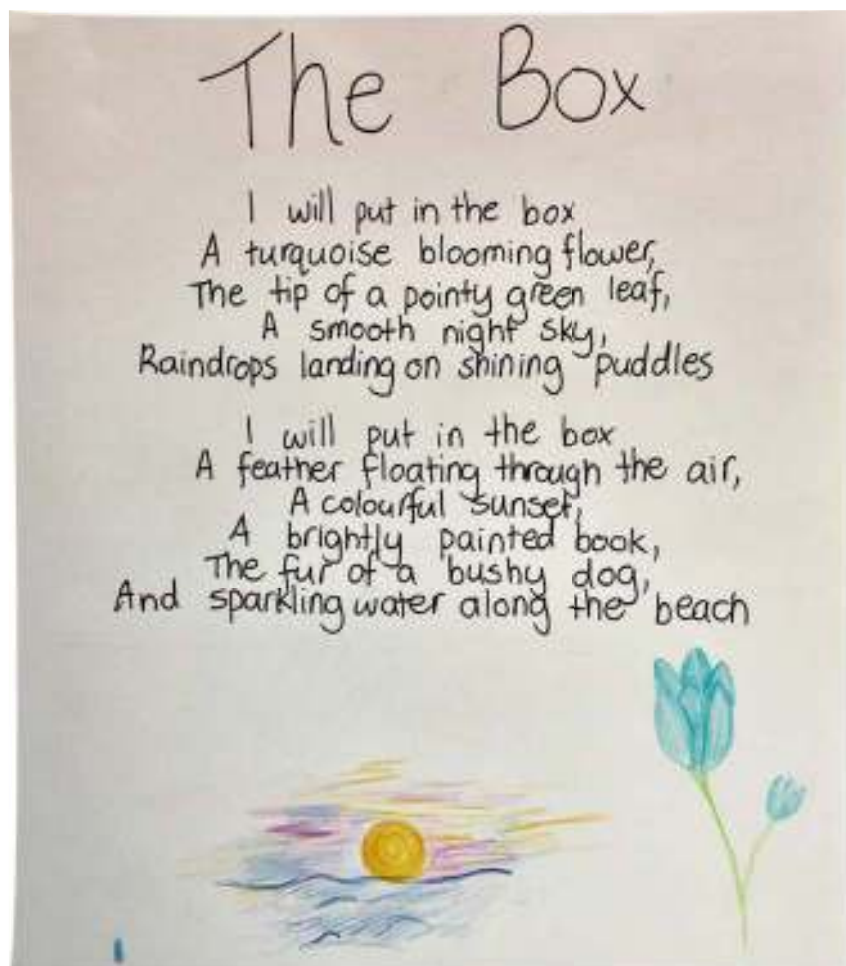 The Box
I will put in the box
A turquoise blooming flower,
The tip of a pointy green leaf,
A smooth night sky,
Raindrops landing on shining puddles
I will put in the box
A feather floating through the air,
A colourful sunset,
A brightly painted book,
The fur of a bushy dog,
And sparkling water along the beach